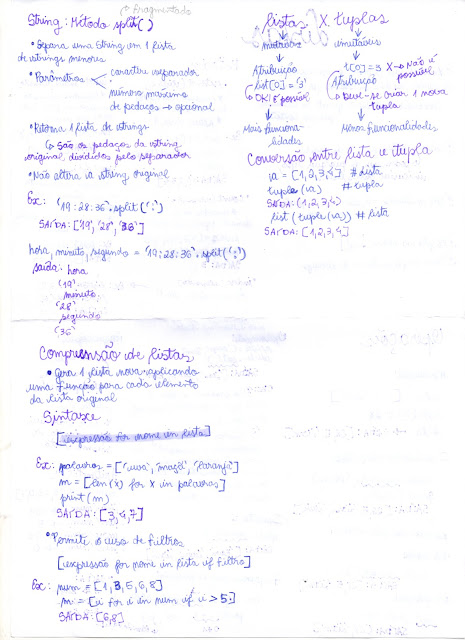 ↱ fragmentado
String: Método split()
• Separa uma string em 1 lista
de strings menores
• Parâmetros
caractere separador
número máximo
de pedaços → opcional
• Retorna 1 lista de strings
↳ São os pedaços da string
original, divididos pelo separador
• Não altera a string original
Ex: '19:28:36'.split(':')
SAÍDA: ['19', '28', '36']
hora, minuto, segundo = '19:28:36'.split(':')
saída: hora
'19'
minuto
'28'
segundo
'36'
listas X tuplas
mutáveis imutáveis
Atribuição
list[0] = '3'
↳ OK! É possível
t[0] = 3 X → Não é
possível
Atribuição
↳ Deve-se criar 1 nova
tupla
Mais funciona-
lidades
Menos funcionalidades
Conversão entre lista e tupla
a = [1,2,3,4] # lista
tuple(a) # tupla
SAÍDA: (1,2,3,4)
list(tuple(a)) # lista
SAÍDA: [1,2,3,4]
Compreensão de listas
• Gera 1 lista nova aplicando
uma função para cada elemento
da lista original
Sintaxe
[expressão for nome in lista]
Ex: palavras = ['uva', 'maçã', 'laranja']
m = [len(x) for x in palavras]
print(m)
SAÍDA: [3,4,7]
• Permite o uso de filtros
[expressão for nome in lista if filtro]
Ex: num = [1,3,5,6,8]
m = [i for i in num if i > 5]
SAÍDA: [6,8]